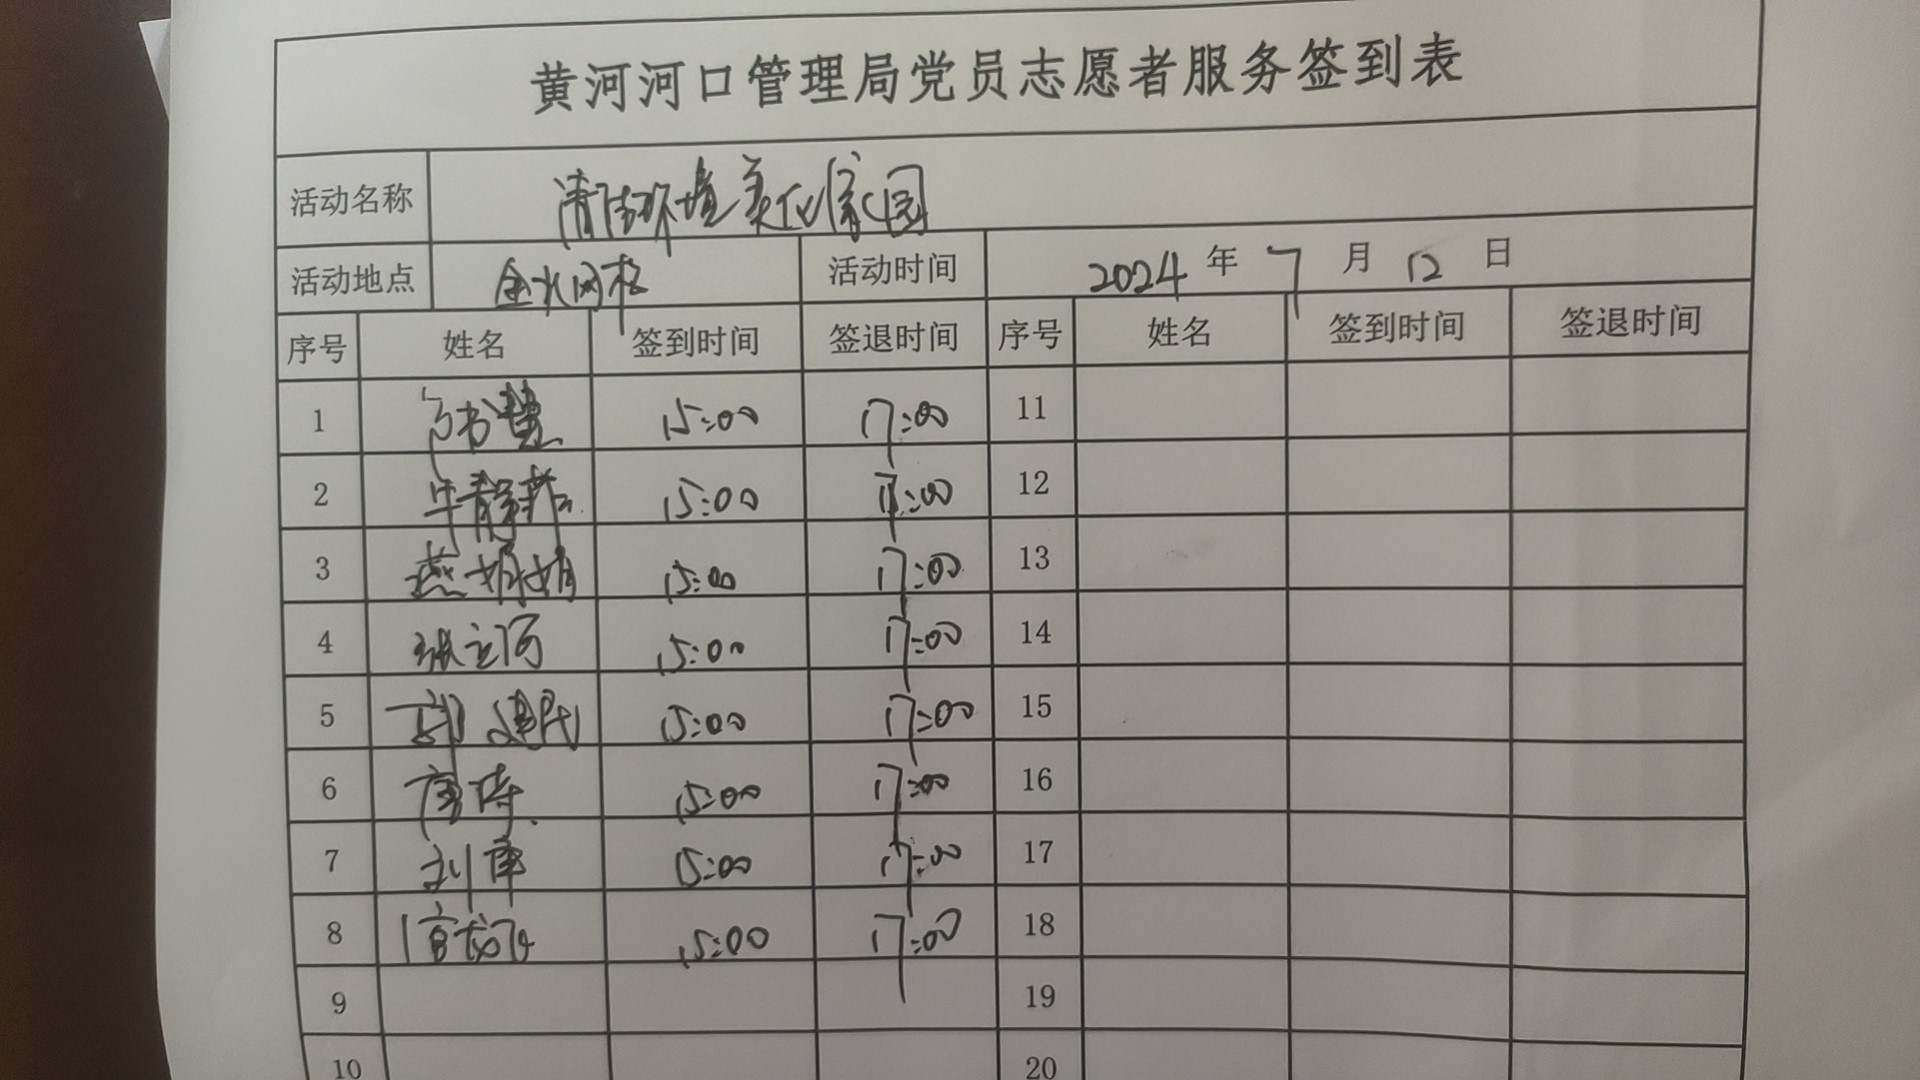 黄河河口管理局党员志愿者服务签到表
活动名称 清洁环境美化家园
活动地点 金水网格 活动时间 2024 年 7 月 12 日
序号 姓名 签到时间 签退时间 序号 姓名 签到时间 签退时间
1 15:00 17:00 11
2 牛静 15:00 17:00 12
3 燕娟娟 15:00 17:00 13
4 张立河 15:00 17:00 14
5 郭建民 15:00 17:00 15
6 唐涛 15:00 17:00 16
7 刘军 15:00 17:00 17
8 15:00 17:00 18
9 19
10 20